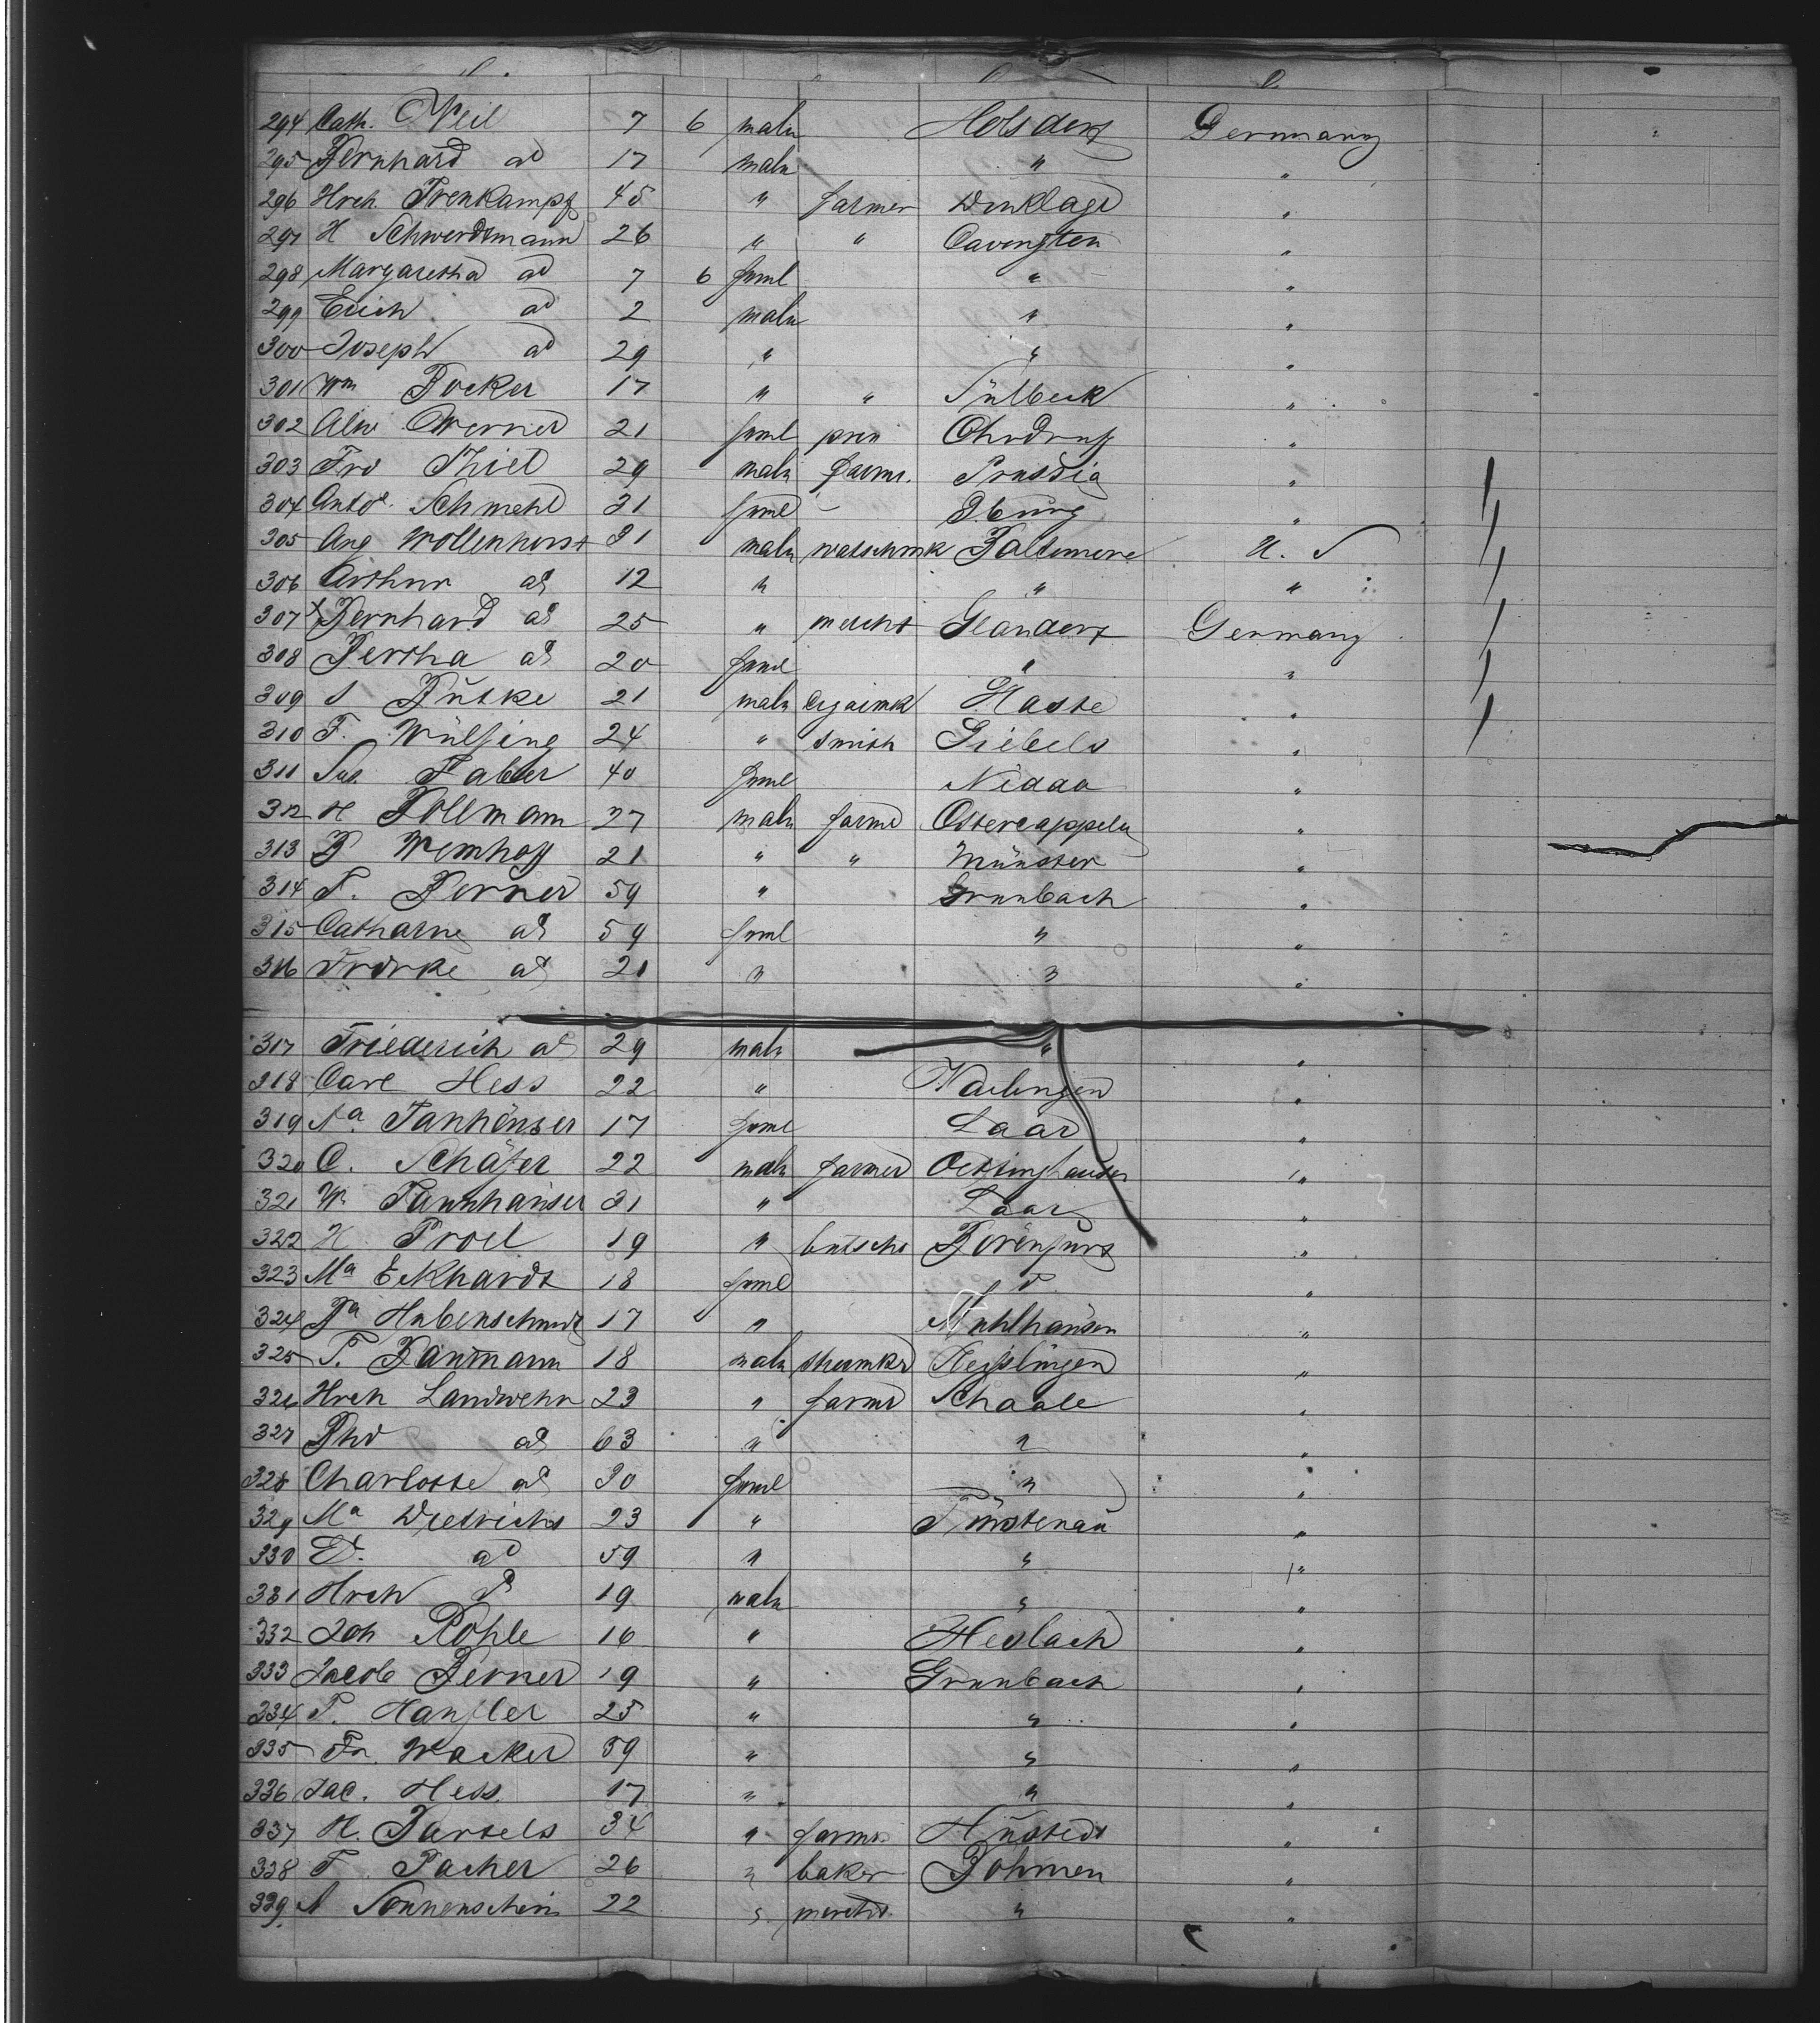 294 Cath. Weil 7 6 male Holsdorf Germany
295 Bernhard ad 17 male " "
296 Hrch. Trenkampf 45 " farmer Dinklage "
297 H Schwerdtmann 26 " " Covington "
298 Margaretha ad 7 6 feml " "
299 Erich ad 2 male " "
300 Joseph ad 29 " " "
301 Wm Bocker 17 " " Sülbeck "
302 Alw Werner 21 feml Ohrdruf "
303 Frd Thiel 29 male farmr. Prussia "
304 Schmehl 31 feml Iburg "
305 Aug Wollenhorst 31 male watschmk Baltimore U. S
306 Arthur ad 12 " " "
307 Bernhard ad 25 " mercht Glandorf Germany
308 Bertha ad 20 feml " "
309 S Bütke 21 male cigarmk Haste "
310 F. Wülfing 24 " smith Giebels "
311 Sus. Faber 40 feml Nidda "
312 H Bollmann 27 male farmr Ostercappeln "
313 B Wemhoff 21 " " Münster "
314 F. Berner 59 " Grunbach "
315 Catharine ad 59 feml " "
316 Fridrke ad 21 " " "
317 Friederich ad 29 male " "
318 Carl Hess 22 " Waiblingen "
319 Na Tanhäuser 17 feml Laar "
320 C. Schäfer 22 male farmer Oettinghausen "
321 W. Tannhäuser 31 " Laar "
322 H. Proel 19 " butschr "
323 Ma Eckhardt 18 feml d "
324 Ba Habenschmidt 17 " Muhlhausen "
325 F. Baumann 18 male shuemkr "
326 Hrch Landwehr 23 " farmr Schaale "
327 ad 63 " " "
328 Charlotte ad 30 feml " "
329 Ma Dietrichs 23 " Fürstenau "
330 E. ad 59 " " "
331 Hrch ad 19 male " "
332 Joh Pohle 16 " Heslach "
333 Jacob Berner 19 " Grunbach "
334 F. Hanfler 25 " " "
335 Fr. Wacker 59 " " "
336 Jac. Hess. 17 " " "
337 H. Bartels 34 " farmr. Hüstedt "
338 F. Pacher 26 " baker Bohmen "
339 A Sonnenschein 22 " mercht. " "